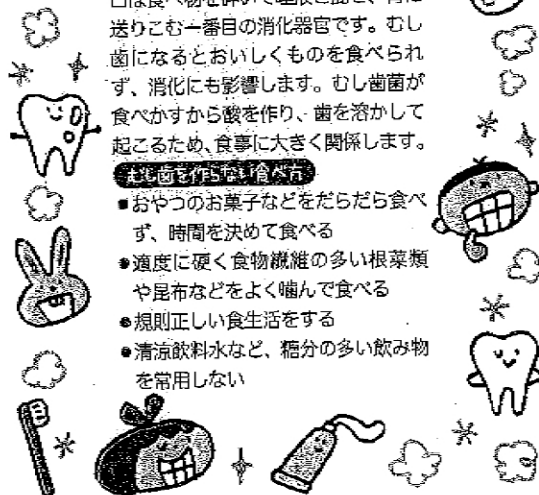 送りこむ一番目の消化器官です。むし
歯になるとおいしくものを食べられ
ず、消化にも影響します。むし歯菌が
食べかすから酸を作り、歯を溶かして
起こるため、食事に大きく関係します。
むし歯を作らない食べ方
●おやつのお菓子などをだらだら食べ
ず、時間を決めて食べる
●適度に硬く食物繊維の多い根菜類
や昆布などをよく噛んで食べる
●規則正しい食生活をする
●清涼飲料水など、糖分の多い飲み物
を常用しない